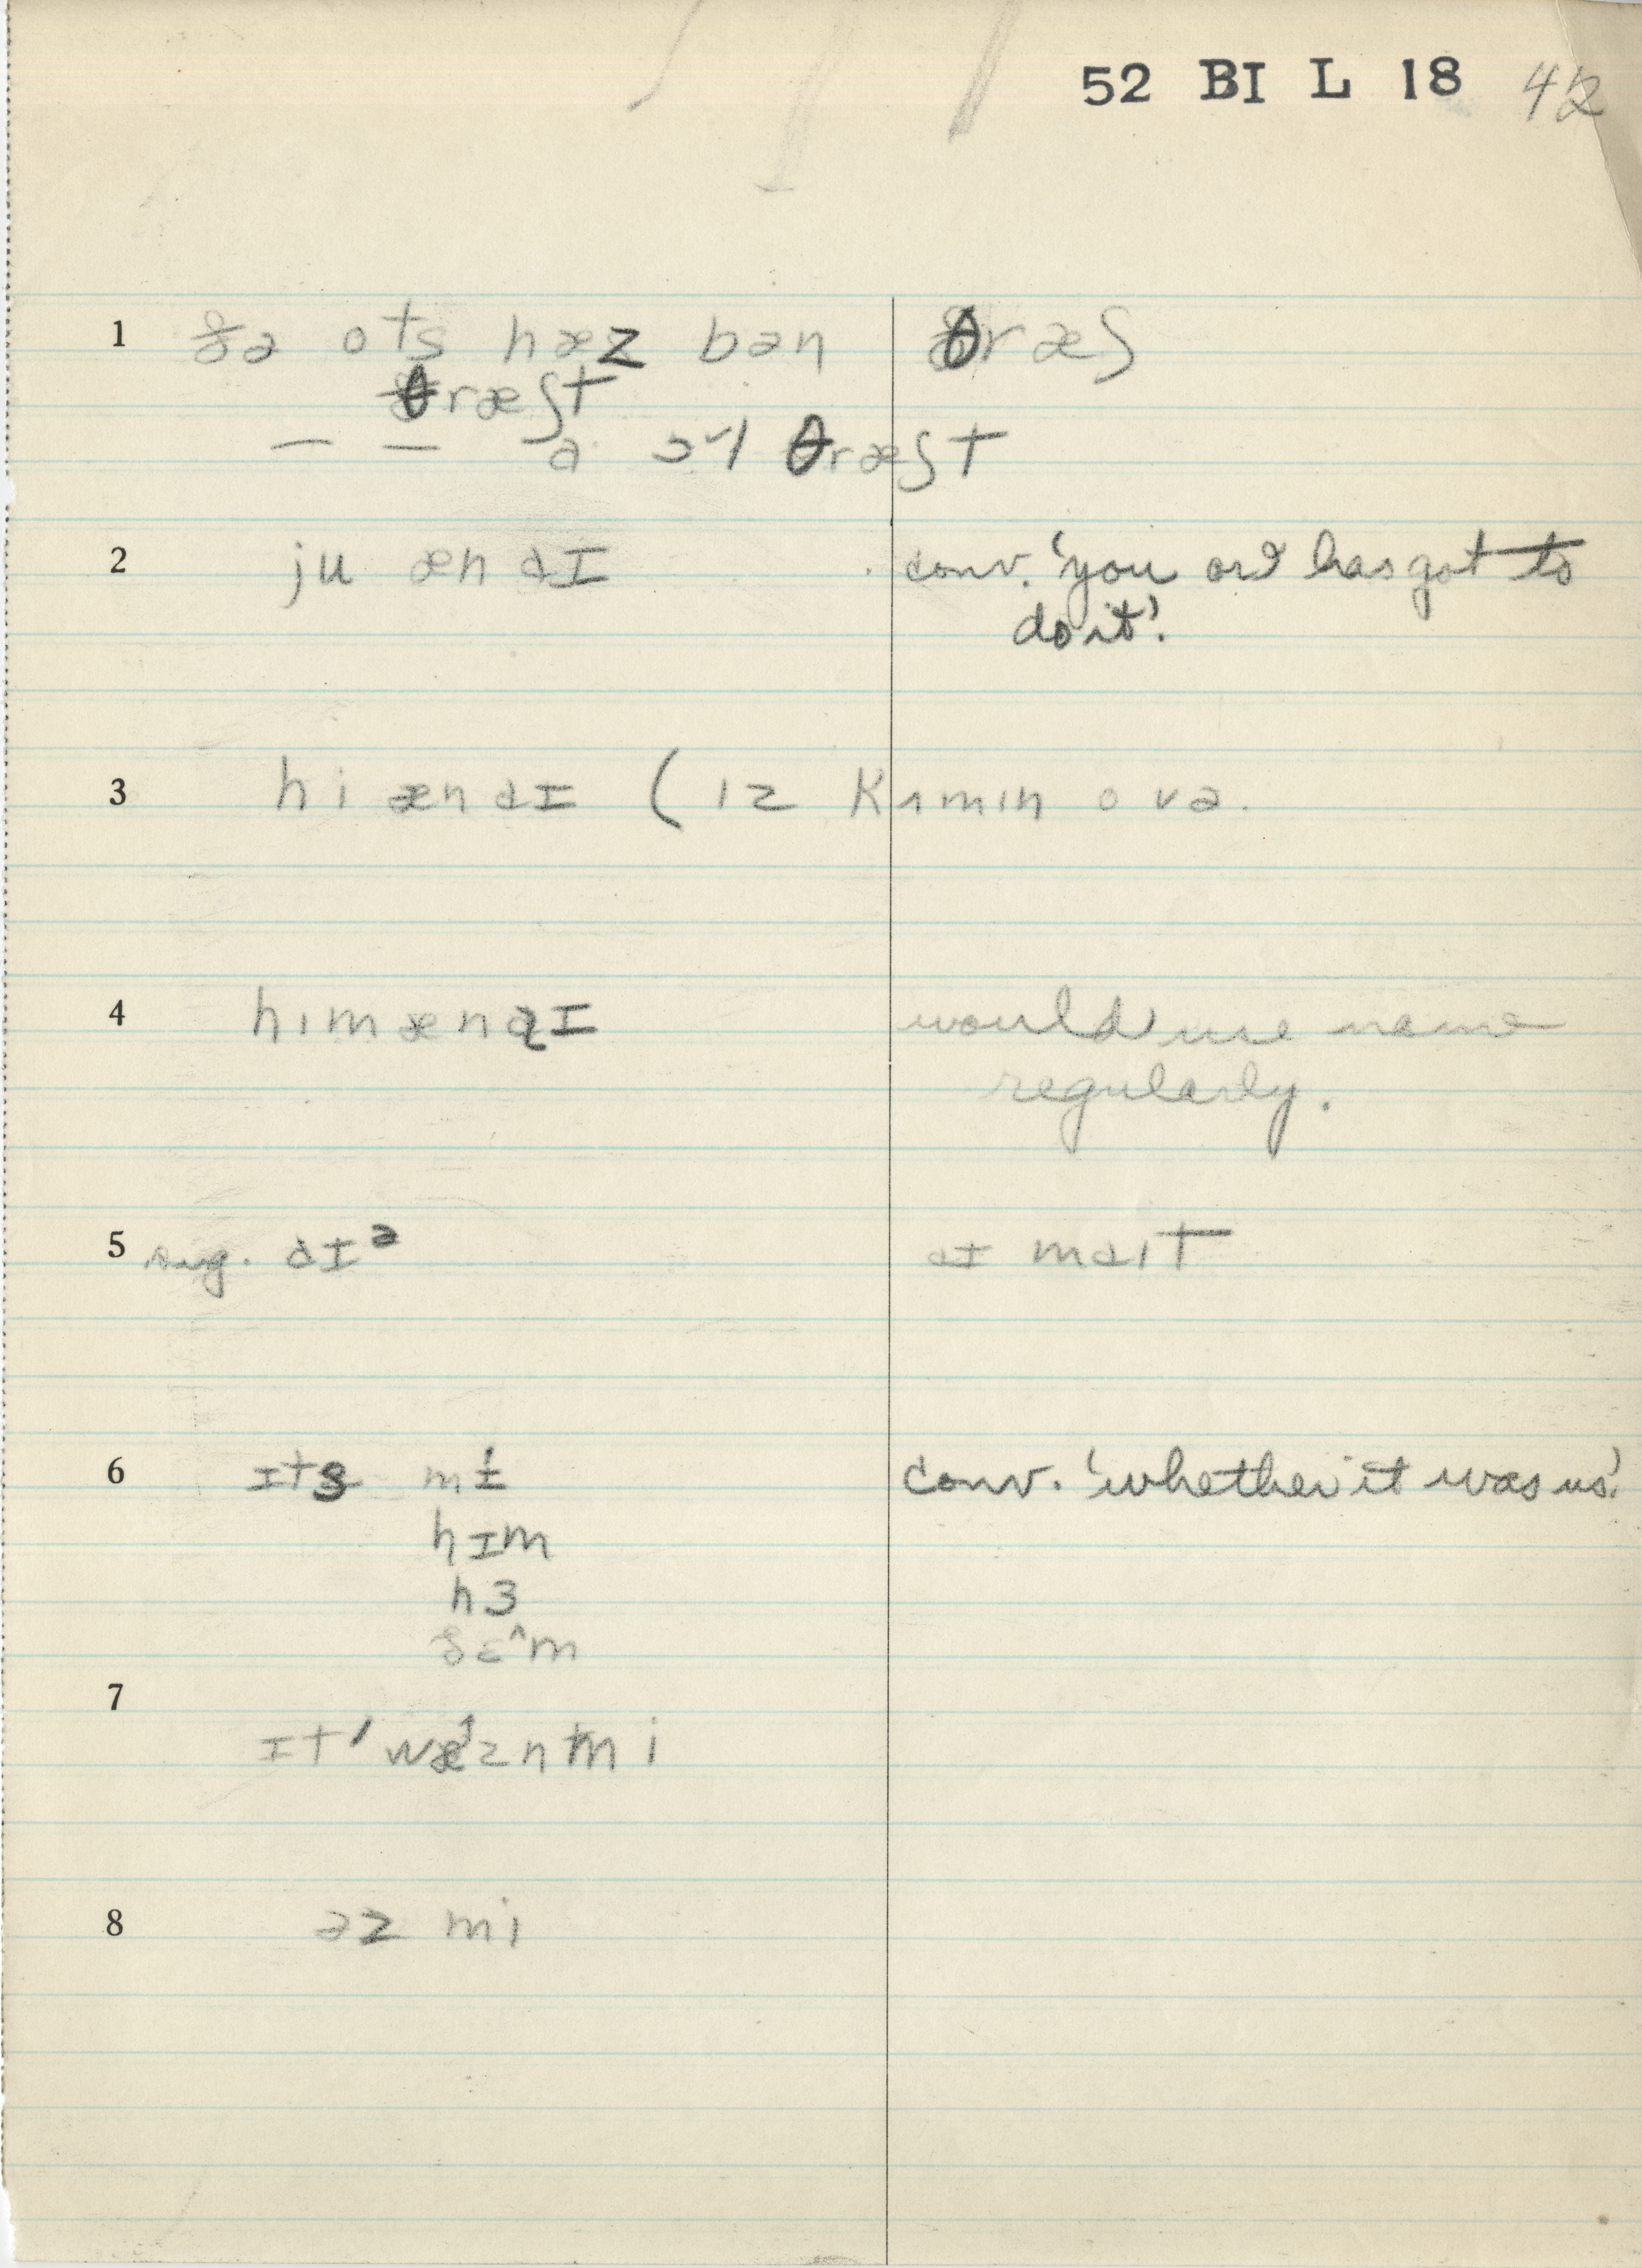 52 BI L 18 42
1 ðə ots hæz bən θræʃ
θræʃt
— — a ɔl θræʃt
2 ju æn aɪ conv. 'you or I has got to
do it'.
3 hi æn aɪ ( ɪz kʌmɪn ovə.
4 hɪm æn aɪ would use name
regularly.
5 sug. aɪə aɪ maɪt
6 ɪts mɨ conv. 'whether it was us'.
hɪm
hɜ
ðɛ^m
7
ɪt wæznt mi
8 əz mi